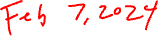 Feb 7, 2024